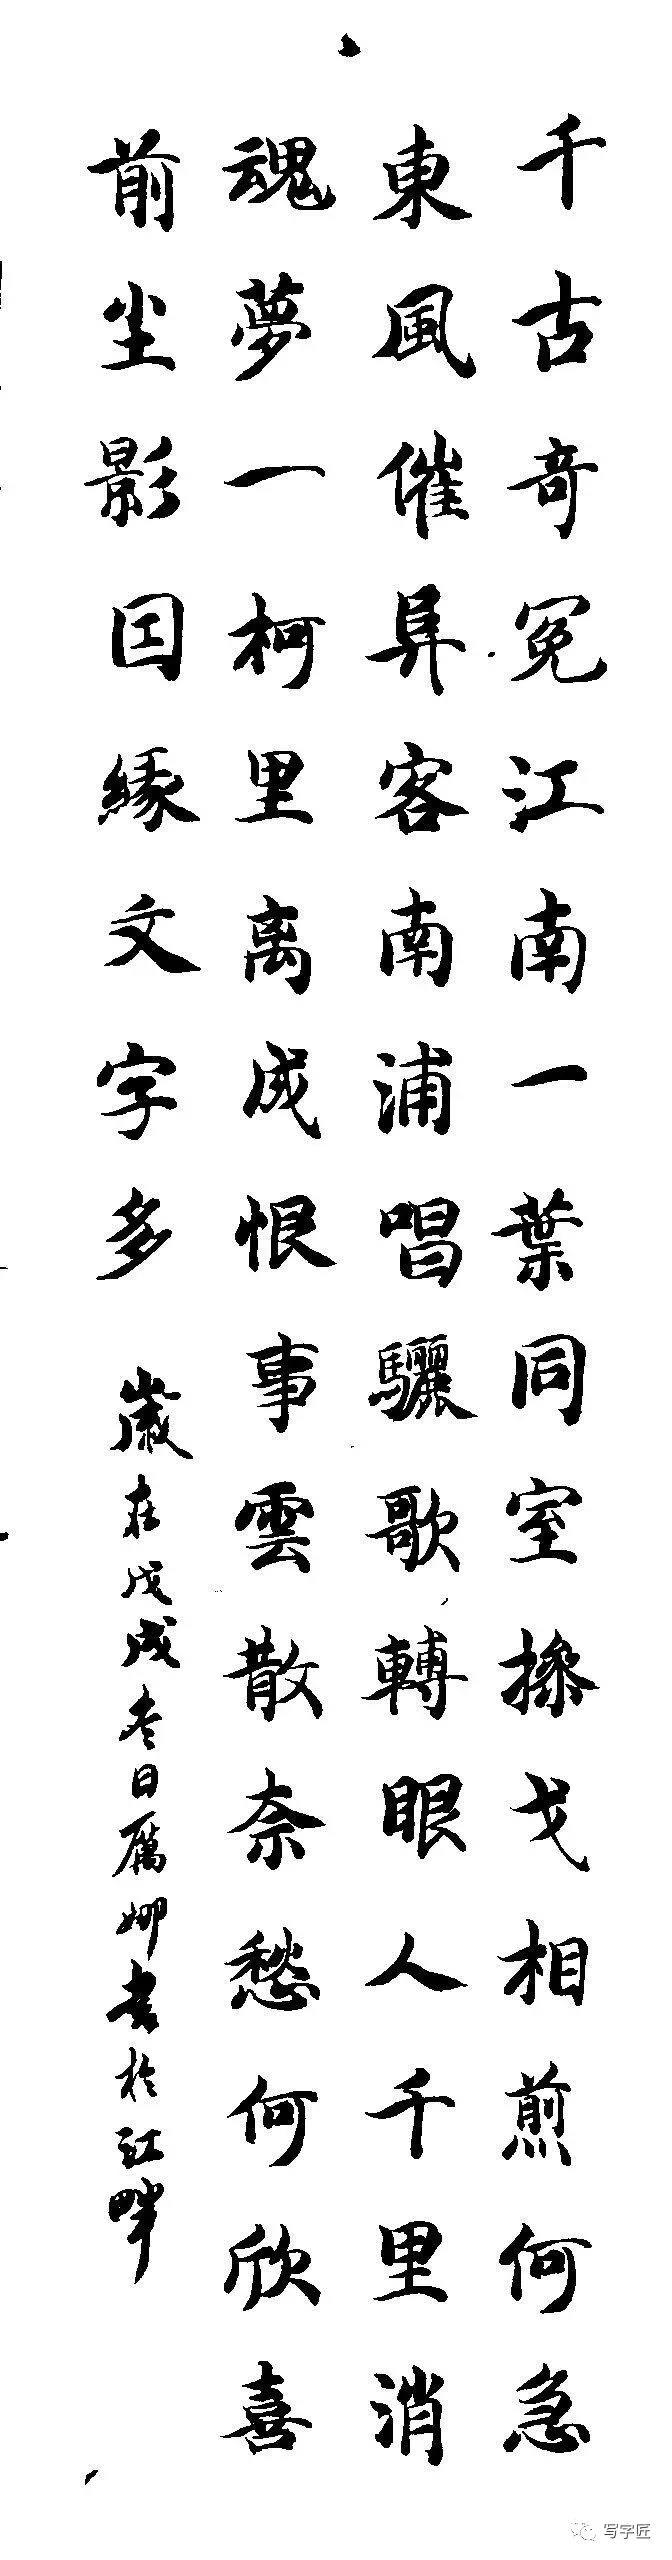 千古奇冤江南一葉同室操戈相煎何急
東風催異客南浦唱驪歌轉眼人千里消
魂夢一柯里离成恨事雲散奈愁何欣喜
前尘影因緣文字多
歲在戊戌冬日厲娜書於江畔
写字匠